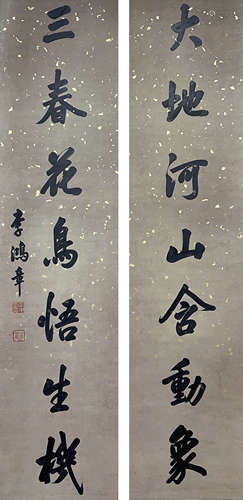 大地河山含動象
三春花鳥悟生機
李鴻章